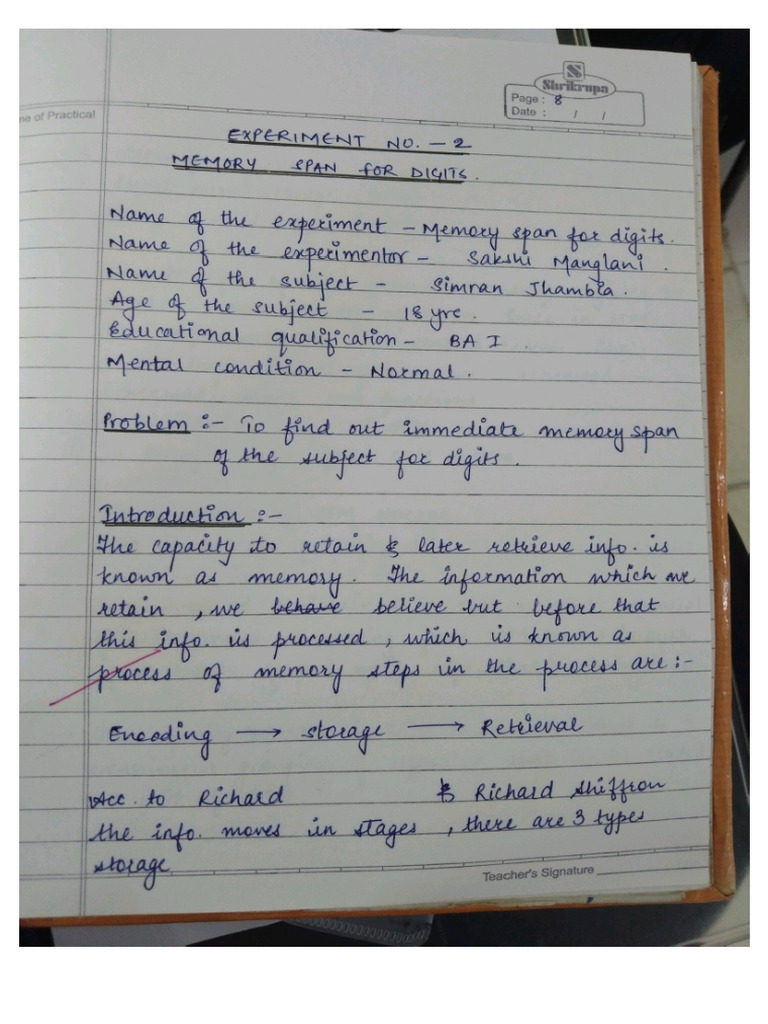 Shrikrupa
me of Practical
Page : 8
Date : / /
EXPERIMENT NO. – 2
MEMORY SPAN FOR DIGITS.
Name of the experiment – Memory span for digits.
Name of the experimentor – Sakshi Manglani.
Name of the subject – Simran Jhambla.
Age of the subject – 18 yrs.
Educational qualification – BA I.
Mental condition – Normal.
Problem :- To find out immediate memory span
of the subject for digits.
Introduction :-
The capacity to retain & later retrieve info. is
known as memory. The information which we
retain, we behave believe but before that
this info. is processed, which is known as
process of memory steps in the process are :-
Encoding → storage → Retrieval
Acc. to Richard & Richard Shiffron
the info. moves in stages, there are 3 types
storage.
Teacher's Signature